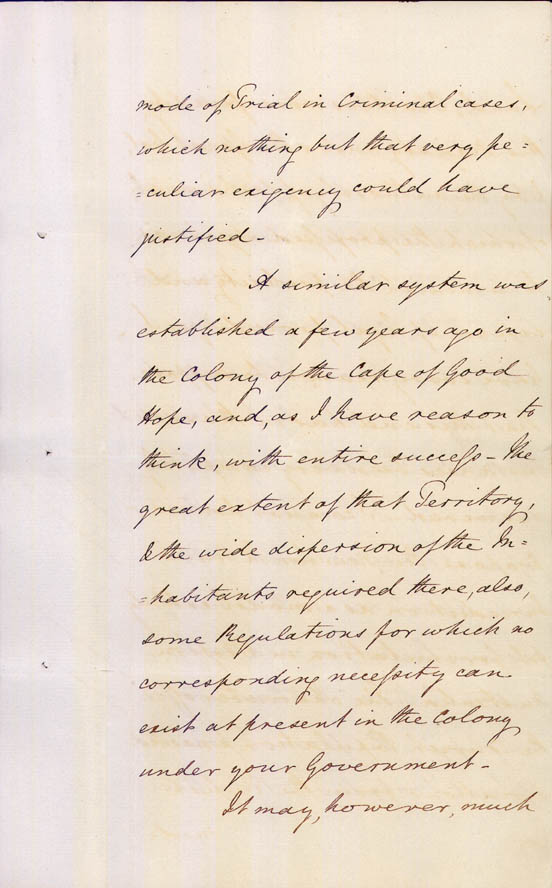 mode of Trial in Criminal cases,
which nothing but that very pe=
=culiar exigency could have
justified -
A similar system was
established a few years ago in
the Colony of the Cape of Good
Hope, and, as I have reason to
think, with entire success - The
great extent of that Territory,
& the wide dispersion of the In=
=habitants required there, also,
some Regulations for which no
corresponding necessity can
exist at present in the Colony
under your Government -
It may, however, much